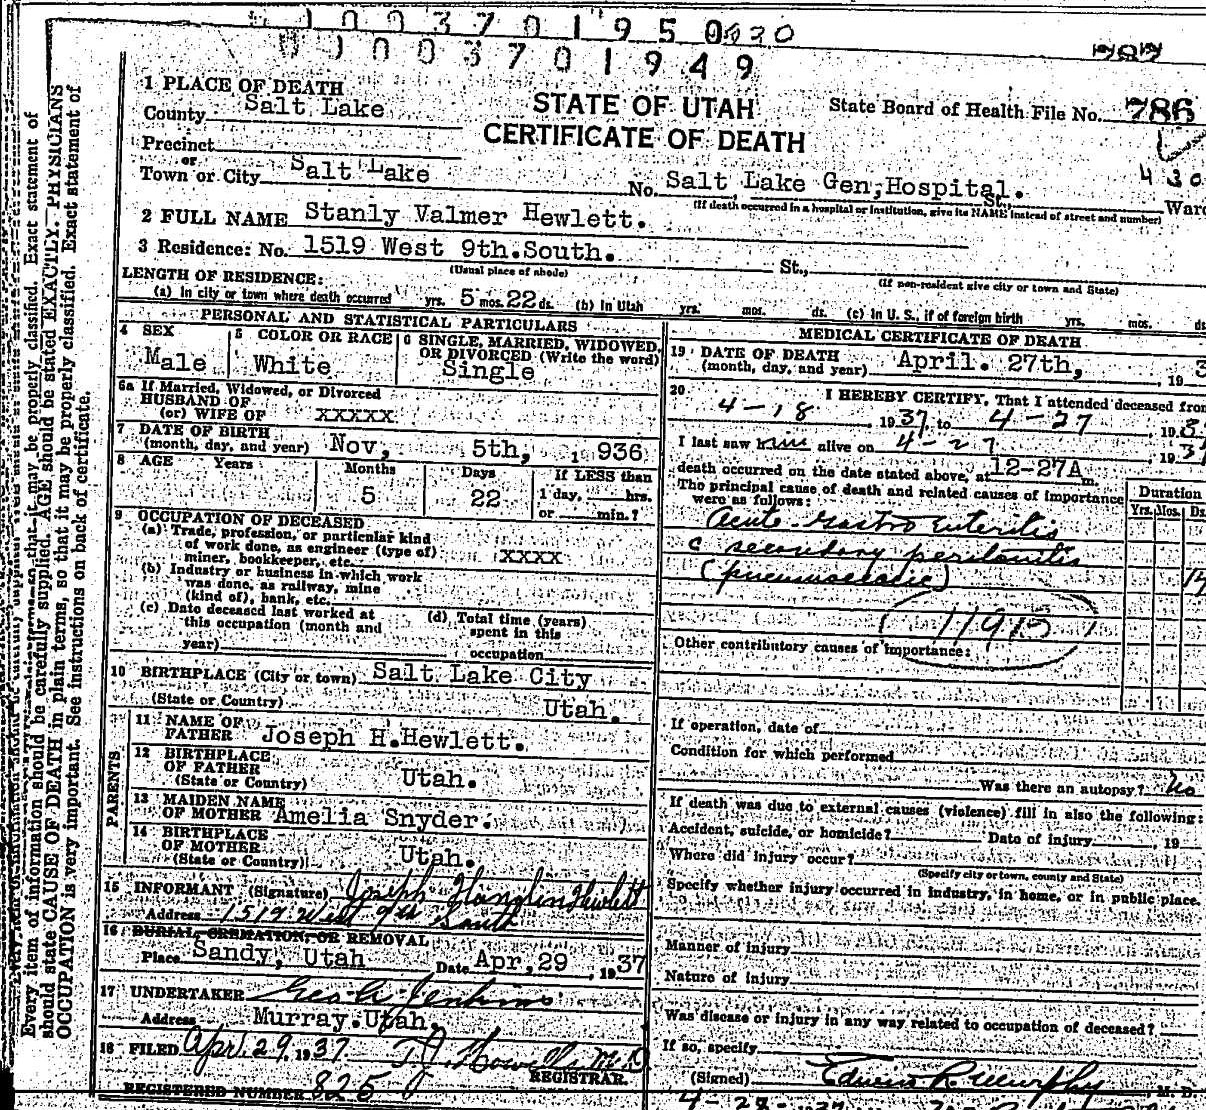 1003701950 430
1003701949
787
1 PLACE OF DEATH
County Salt Lake
STATE OF UTAH
CERTIFICATE OF DEATH
State Board of Health File No. 786
430
Precinct
or
Town or City Salt Lake No. Salt Lake Gen, Hospital. St., Ward
(If death occurred in a hospital or institution, give its NAME instead of street and number)
2 FULL NAME Stanly Valmer Hewlett.
3 Residence: No. 1519 West 9th. South. St.,
(Usual place of abode) (If non-resident give city or town and State)
LENGTH OF RESIDENCE:
(a) In city or town where death occurred yrs. 5 mos. 22 ds. (b) In Utah yrs. mos. ds. (c) In U. S., if of foreign birth yrs. mos. ds
PERSONAL AND STATISTICAL PARTICULARS
4 SEX
Male
5 COLOR OR RACE
White
6 SINGLE, MARRIED, WIDOWED, OR DIVORCED (Write the word)
Single
6a If Married, Widowed, or Divorced
HUSBAND OF
(or) WIFE OF xxxxx
7 DATE OF BIRTH
(month, day, and year) Nov, 5th, 1936
8 AGE Years Months Days If LESS than
5 22 1 day, hrs.
or min.?
9 OCCUPATION OF DECEASED
(a) Trade, profession, or particular kind
of work done, as engineer (type of)
miner, bookkeeper, etc. xxxx
(b) Industry or business in which work
was done, as railway, mine
(kind of), bank, etc.
(c) Date deceased last worked at
this occupation (month and
year)
(d) Total time (years)
spent in this
occupation
10 BIRTHPLACE (City or town) Salt Lake City
(State or Country) Utah.
PARENTS
11 NAME OF
FATHER Joseph H. Hewlett.
12 BIRTHPLACE
OF FATHER
(State or Country) Utah.
13 MAIDEN NAME
OF MOTHER Amelia Snyder.
14 BIRTHPLACE
OF MOTHER
(State or Country) Utah.
15 INFORMANT (Signature) Joseph Hewlett
Address 1519 West 9th South
16 BURIAL, CREMATION, OR REMOVAL
Place Sandy, Utah Date Apr, 29, 1937
17 UNDERTAKER Geo. A. Jenkins
Address Murray. Utah.
18 FILED Apr. 29, 1937 T.J. Howells M.D
REGISTRAR.
REGISTERED NUMBER 825
MEDICAL CERTIFICATE OF DEATH
19 DATE OF DEATH
(month, day, and year) April. 27th, 193
20 I HEREBY CERTIFY, That I attended deceased from
4-18 1937, to 4-27, 193
I last saw him alive on 4-27, 1937
death occurred on the date stated above, at 12-27A m.
The principal cause of death and related causes of importance
were as follows:
Duration
Yrs. Mos. Ds.
Acute Gastro Enteritis
c secondary peritonitis
(pneumococcic) 14
Other contributory causes of importance:
If operation, date of
Condition for which performed
Was there an autopsy? No
If death was due to external causes (violence) fill in also the following:
Accident, suicide, or homicide? Date of injury , 19
Where did injury occur?
(Specify city or town, county and State)
Specify whether injury occurred in industry, in home, or in public place.
Manner of injury
Nature of injury
Was disease or injury in any way related to occupation of deceased?
If so, specify
(Signed) Edwin R. Murphy, M. D.
4-28-1937
Every item of information should be carefully supplied. AGE should be stated EXACTLY. PHYSICIANS
should state CAUSE OF DEATH in plain terms, so that it may be properly classified. Exact statement of
OCCUPATION is very important. See instructions on back of certificate.